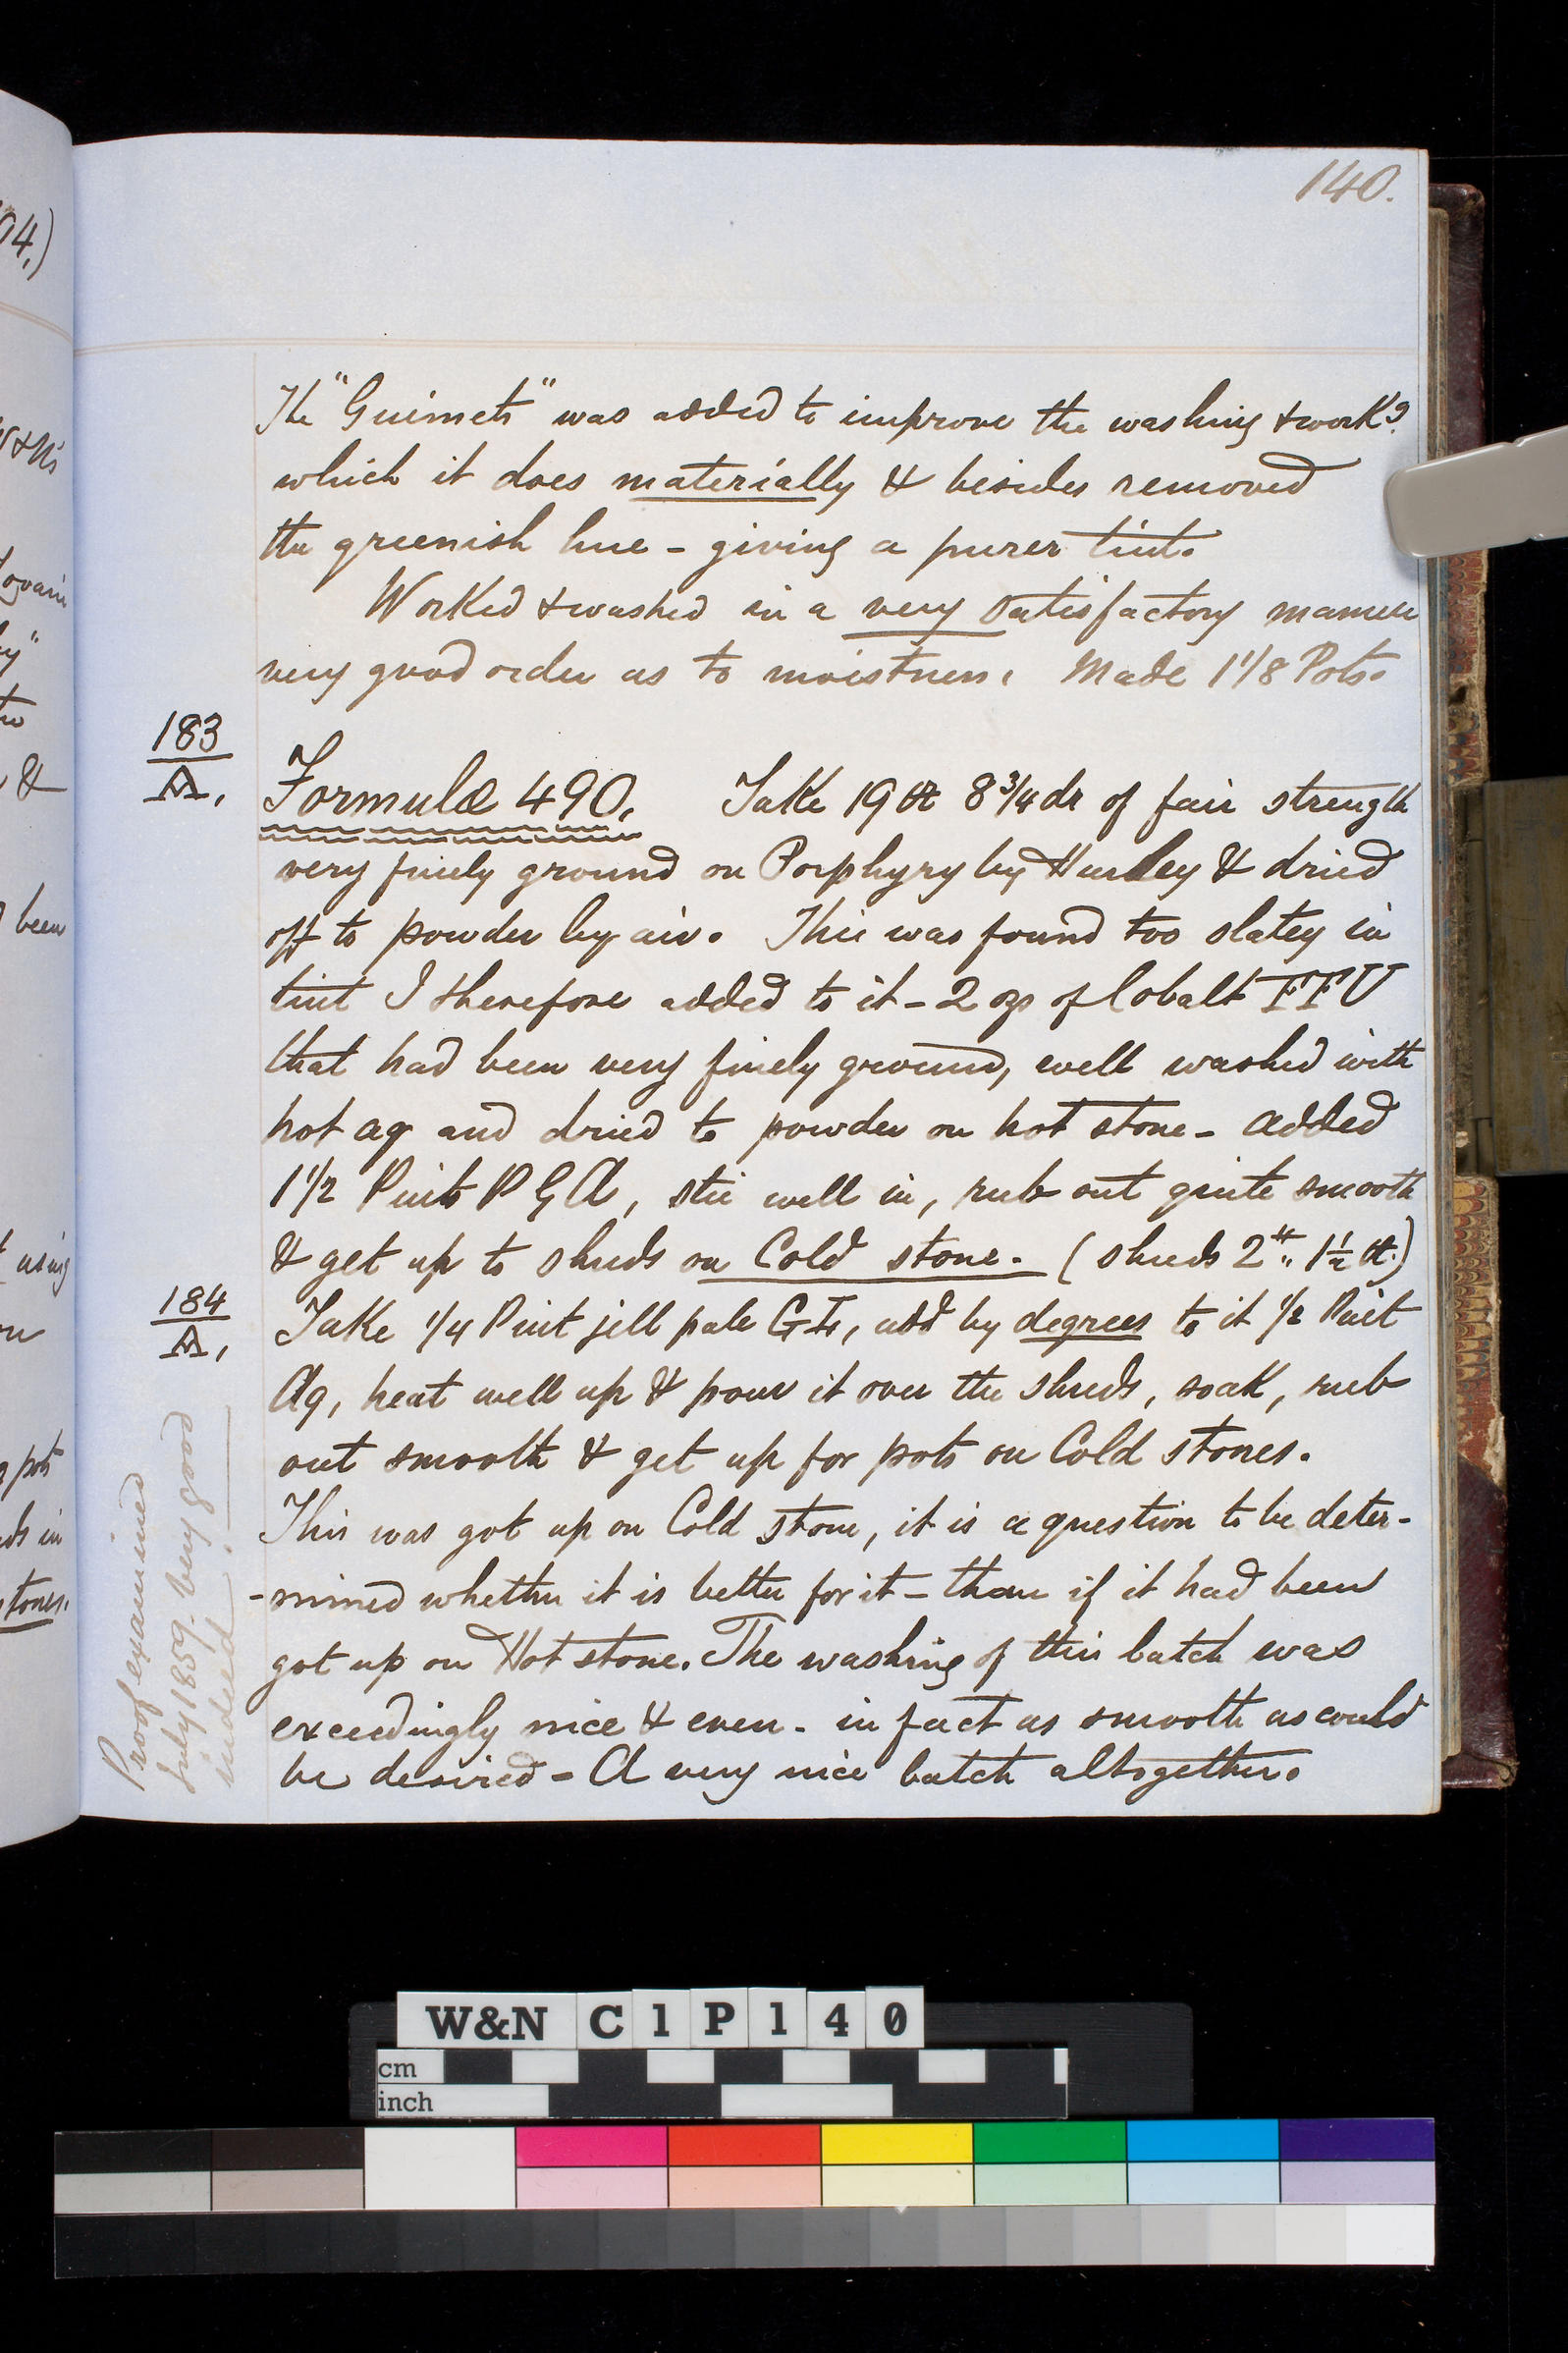 140.
The "Guimets" was added to improve the washing & workg.
which it does materially & besides removed
the greenish hue - giving a purer tint.
Worked & washed in a very satisfactory manner
very good order as to moistness. Made 1 1/8 Pots.
183
A.
Formula 490. Take 19 8 3/4 dr of fair strength
very finely ground on Porphyry by Hurley & dried
off to powder by air. This was found too slatey in
tint I therefore added to it - 2 ozs of Cobalt FFU
that had been very finely ground, well washed with
hot aq and dried to powder on hot stone - added
1 1/2 Pints P G A, stir well in, rub out quite smooth
& get up to shreds on Cold stone. (shreds 2 1 1/2 )
184
A.
Take 1/4 Pint jell pale GL, add by degrees to it 1/2 Pint
Aq, heat well up & pour it over the shreds, soak, rub
out smooth & get up for pots on Cold stones.
This was got up on Cold stone, it is a question to be deter-
-mined whether it is better for it - than if it had been
got up on Hot stone. The washing of this batch was
exceedingly nice & even - in fact as smooth as could
be desired - A very nice batch altogether.
Proof examined
July 1859 - very good
indeed.
04.)
been
using
pots
in
stones.
W&N C1P140
cm
inch